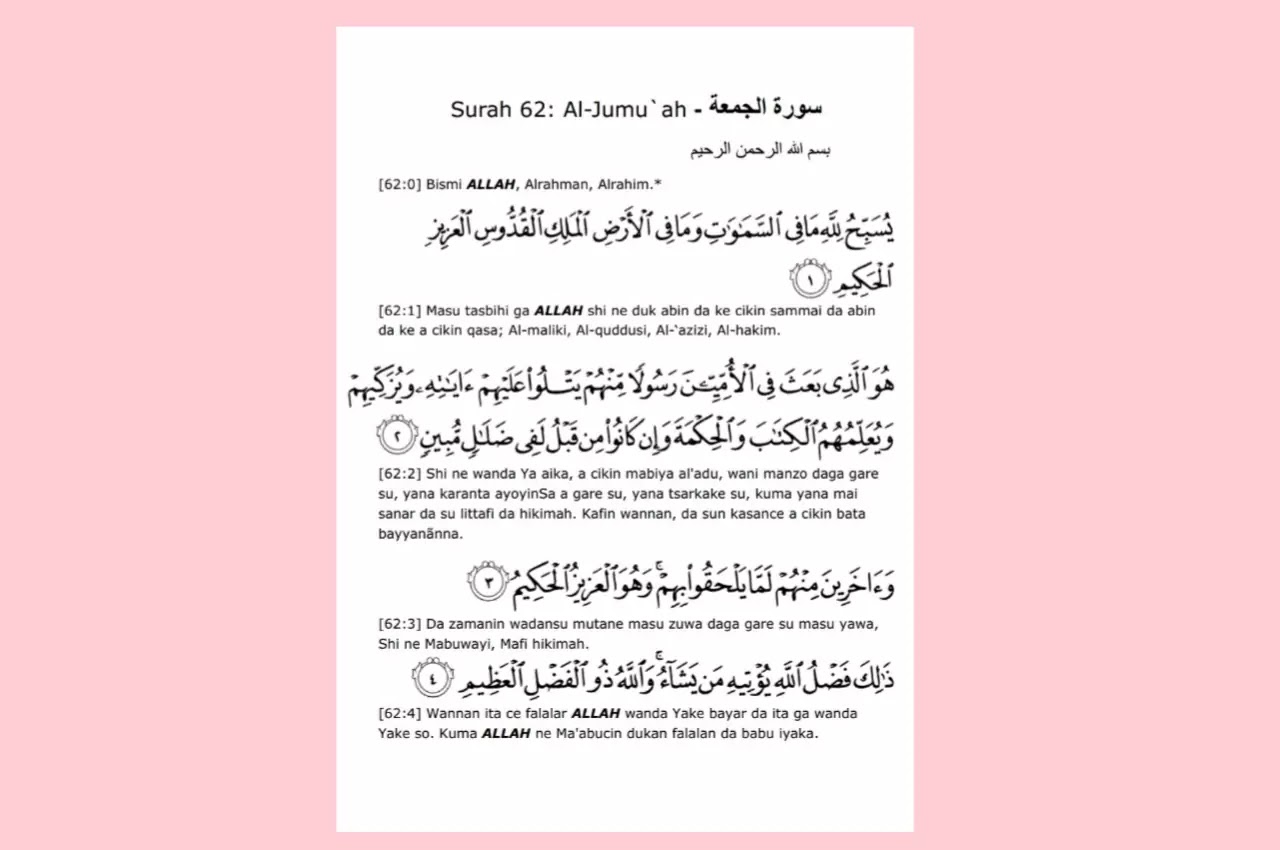 Surah 62: Al-Jumu`ah - سورة الجمعة
بسم الله الرحمن الرحيم
[62:0] Bismi ALLAH, Alrahman, Alrahim.*
يُسَبِّحُ لِلَّهِ مَا فِي ٱلسَّمَٰوَٰتِ وَمَا فِي ٱلْأَرْضِ ٱلْمَلِكِ ٱلْقُدُّوسِ ٱلْعَزِيزِ
ٱلْحَكِيمِ ١
[62:1] Masu tasbihi ga ALLAH shi ne duk abin da ke cikin sammai da abin
da ke a cikin qasa; Al-maliki, Al-quddusi, Al-`azizi, Al-hakim.
هُوَ ٱلَّذِي بَعَثَ فِي ٱلْأُمِّيِّـۧنَ رَسُولًا مِّنْهُمْ يَتْلُوا۟ عَلَيْهِمْ ءَايَٰتِهِۦ وَيُزَكِّيهِمْ
وَيُعَلِّمُهُمُ ٱلْكِتَٰبَ وَٱلْحِكْمَةَ وَإِن كَانُوا۟ مِن قَبْلُ لَفِي ضَلَٰلٍ مُّبِينٍ ٢
[62:2] Shi ne wanda Ya aika, a cikin mabiya al'adu, wani manzo daga gare
su, yana karanta ayoyinSa a gare su, yana tsarkake su, kuma yana mai
sanar da su littafi da hikimah. Kafin wannan, da sun kasance a cikin bata
bayyanãnna.
وَءَاخَرِينَ مِنْهُمْ لَمَّا يَلْحَقُوا۟ بِهِمْ ۚ وَهُوَ ٱلْعَزِيزُ ٱلْحَكِيمُ ٣
[62:3] Da zamanin wadansu mutane masu zuwa daga gare su masu yawa,
Shi ne Mabuwayi, Mafi hikimah.
ذَٰلِكَ فَضْلُ ٱللَّهِ يُؤْتِيهِ مَن يَشَآءُ ۚ وَٱللَّهُ ذُو ٱلْفَضْلِ ٱلْعَظِيمِ ٤
[62:4] Wannan ita ce falalar ALLAH wanda Yake bayar da ita ga wanda
Yake so. Kuma ALLAH ne Ma'abucin dukan falalan da babu iyaka.